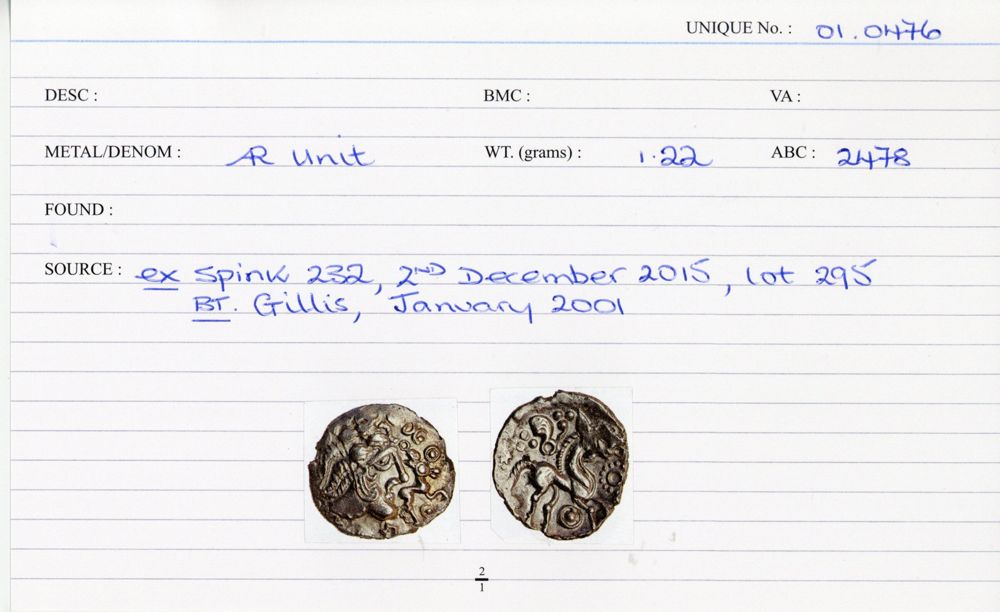 UNIQUE No. : 01.0476
DESC : BMC : VA :
METAL/DENOM : AR Unit WT. (grams) : 1.22 ABC : 2478
FOUND :
SOURCE : ex Spink 232, 2ND December 2015, lot 295
BT. Gillis, January 2001
2
1